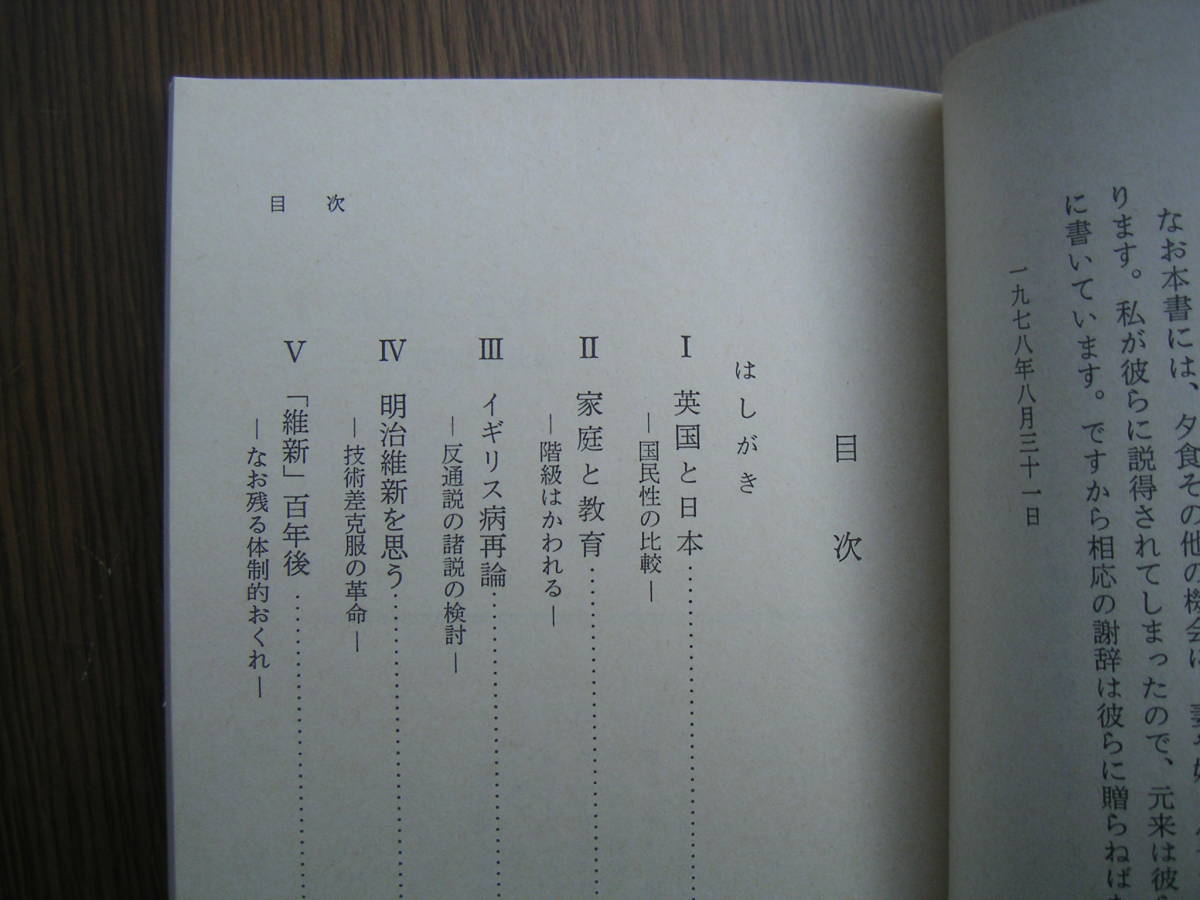 なお本書には、夕食その他の機会に、妻や
ります。私が彼らに説得されてしまったので、元来は彼
に書いています。ですから相応の謝辞は彼らに贈らねば
一九七八年八月三十一日
目次
はしがき
Ⅰ 英国と日本
―国民性の比較―
Ⅱ 家庭と教育
―階級はかわれる―
Ⅲ イギリス病再論
―反通説の諸説の検討―
Ⅳ 明治維新を思う
―技術差克服の革命―
Ⅴ 「維新」百年後
―なお残る体制的おくれ―
目次